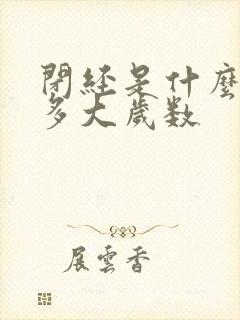 閉経是什麼
多大歲数
展雲香